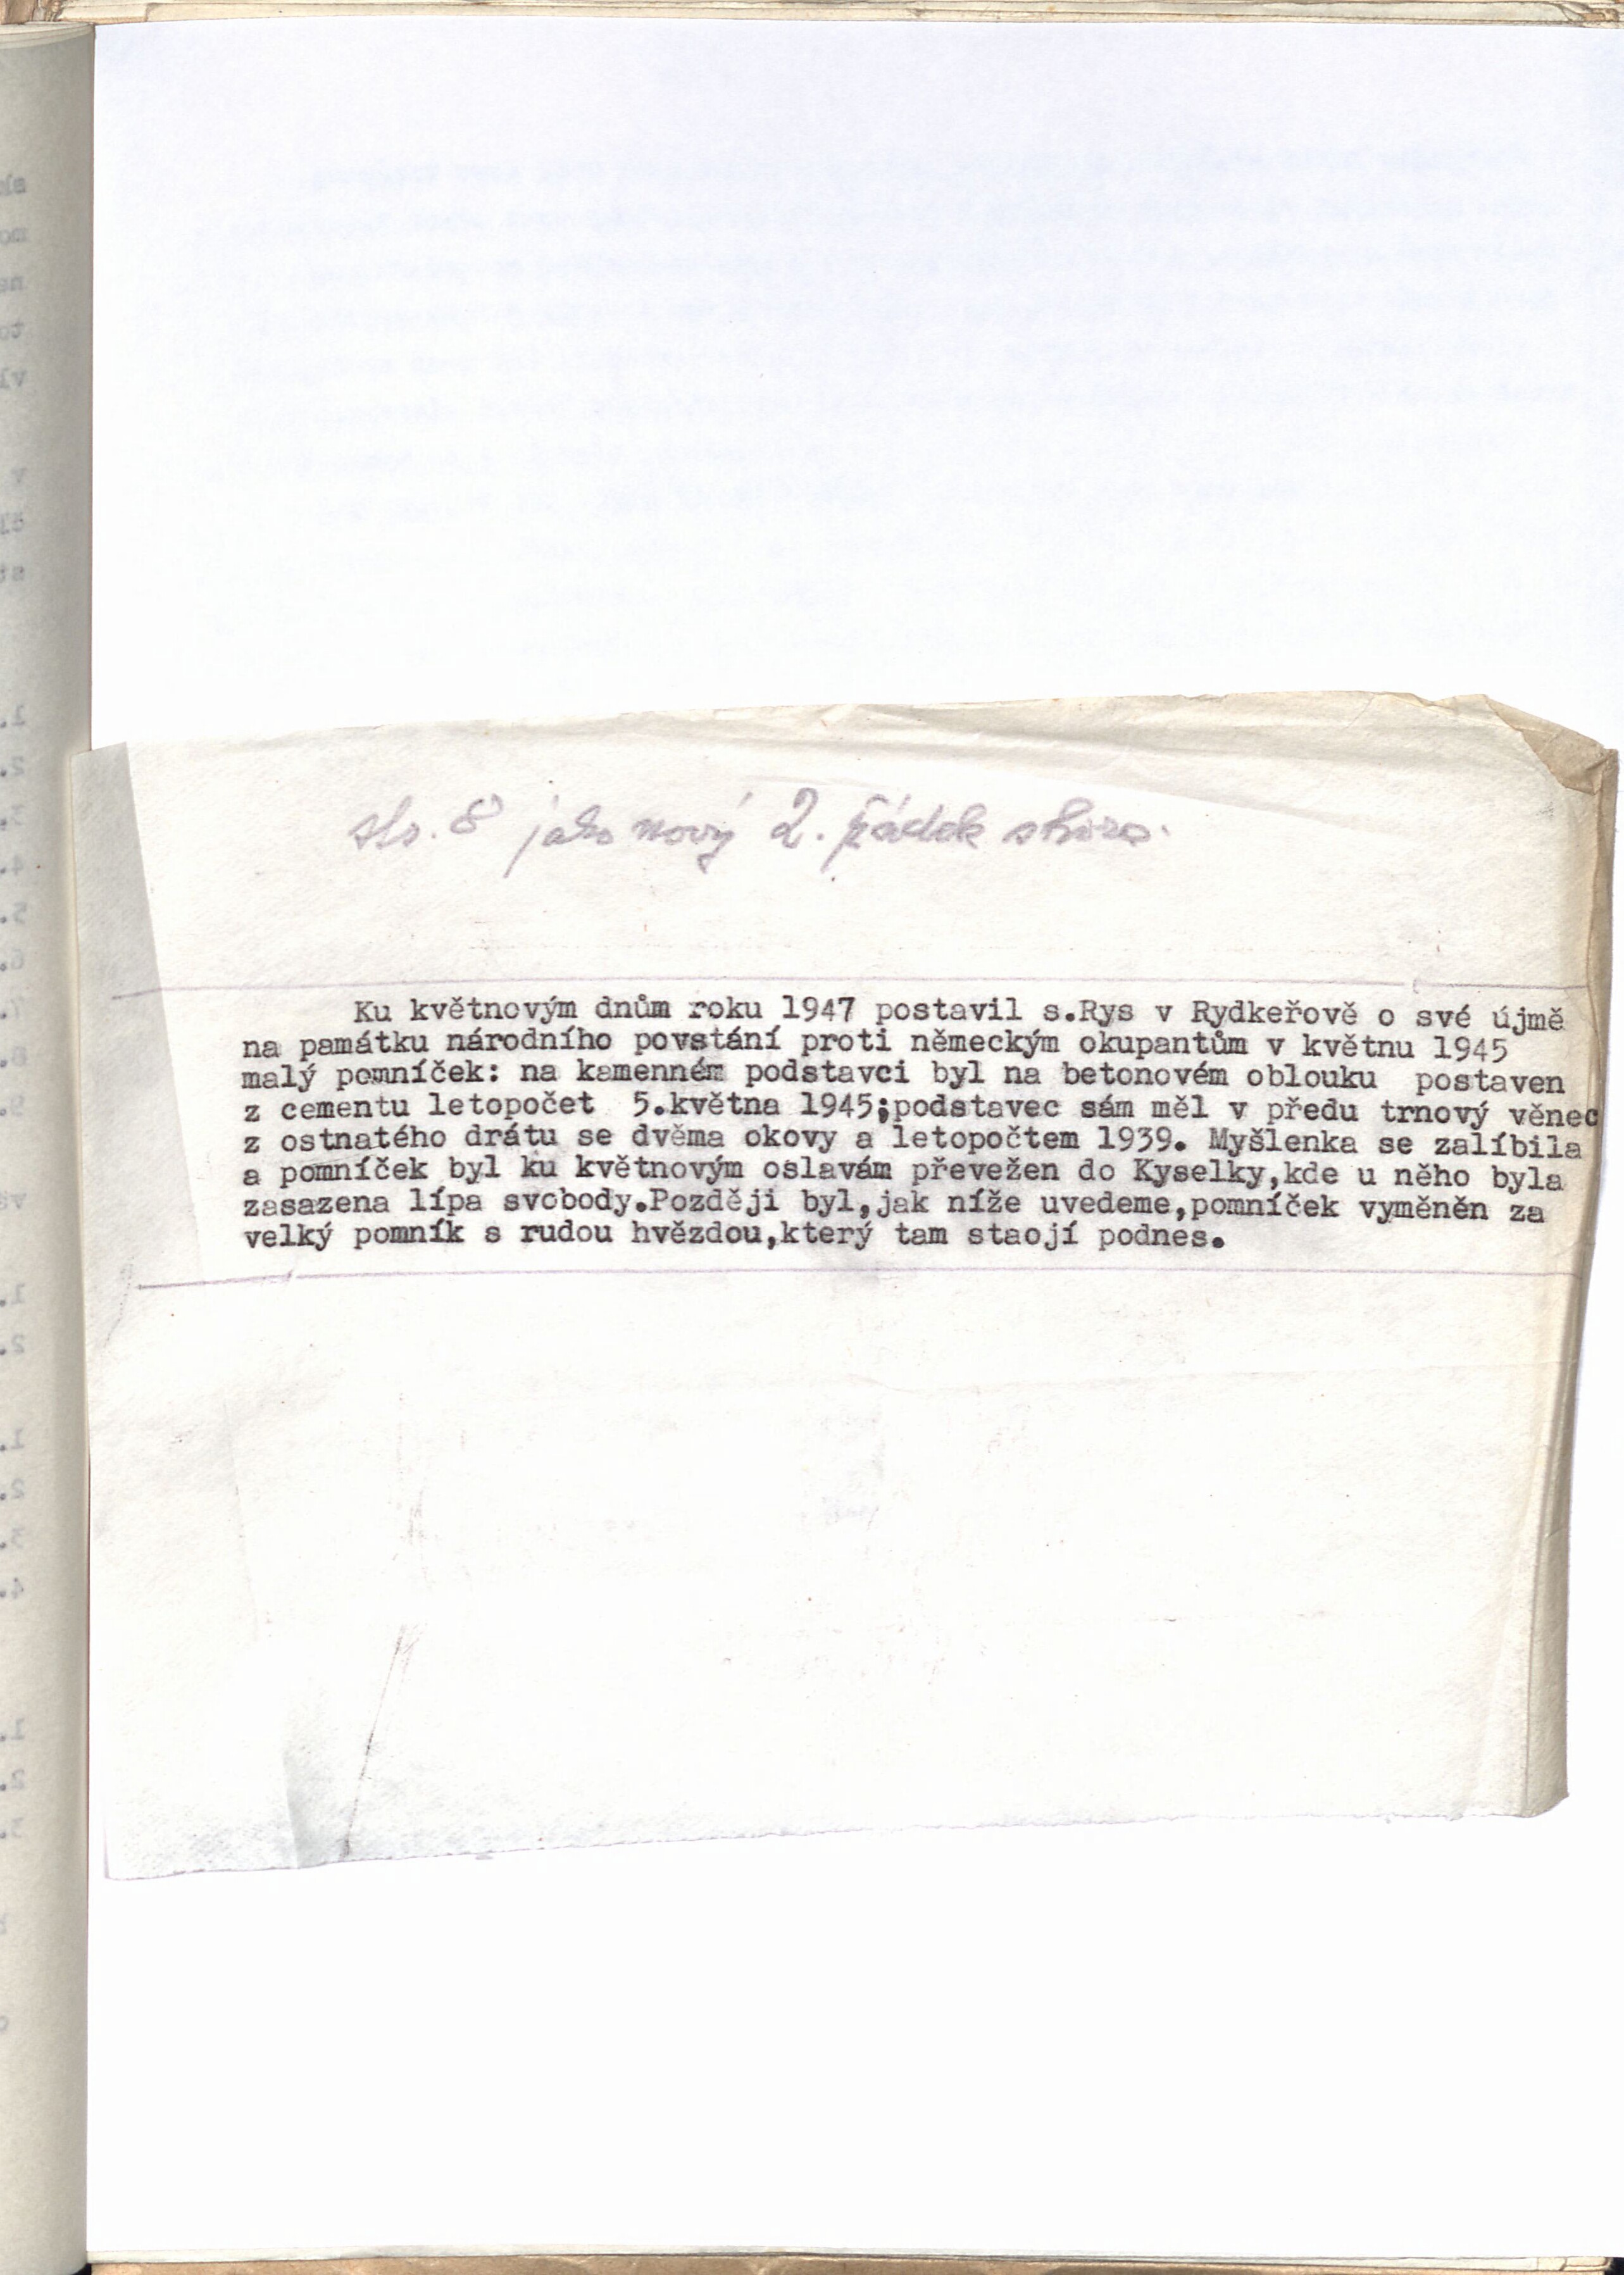 str. 8 jako nový 2. řádek shora.
Ku květnovým dnům roku 1947 postavil s.Rys v Rydkeřově o své újmě
na památku národního povstání proti německým okupantům v květnu 1945
malý pomníček: na kamenném podstavci byl na betonovém oblouku postaven
z cementu letopočet 5.května 1945;podstavec sám měl v předu trnový věnec
z ostnatého drátu se dvěma okovy a letopočtem 1939. Myšlenka se zalíbila
a pomníček byl ku květnovým oslavám převežen do Kyselky,kde u něho byla
zasazena lípa svobody.Později byl,jak níže uvedeme,pomníček vyměněn za
velký pomník s rudou hvězdou,který tam staojí podnes.